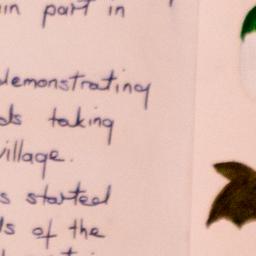 part in
demonstrating
taking
village.
started
of the